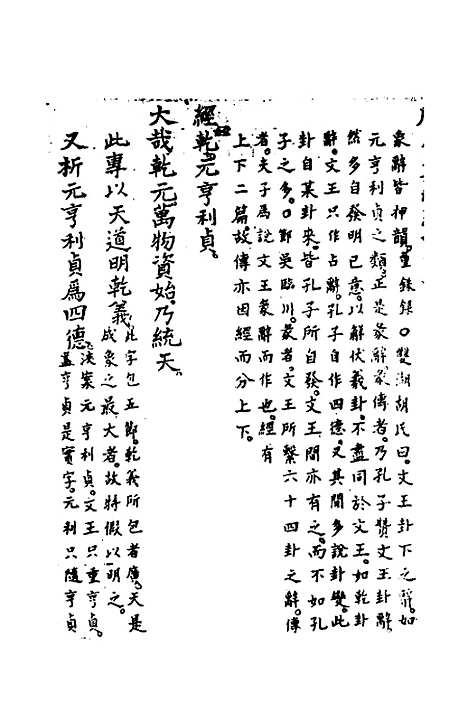 彖辭皆押韻。重錄錄○雙湖胡氏曰。文王卦下之辭。如
元亨利貞之類。正是彖辭。彖傳者。乃孔子贊文王卦辭
然多自發明己意。以解伏羲卦。不盡同於文王。如乾卦
辭。文王只作占辭。孔子自作四德。又其間多說卦變。此
卦自某卦來。皆孔子所自發。文王間亦有之。而不如孔
子之多。○鄭吳臨川。彖者。文王所繫六十四卦之辭。傳
者。夫子為說文王彖辭而作也。經有
上下二篇。故傳亦因經而分上下。
經乾。元亨利貞。
大哉乾元。萬物資始。乃統天。
此專以天道明乾義。此字包五節。乾義所包者廣。天是
成象之最大者。故特假以明之。
又析元亨利貞為四德。淡案元亨利貞。文王只重亨貞。
蓋亨貞是實字。元利只隨亨貞